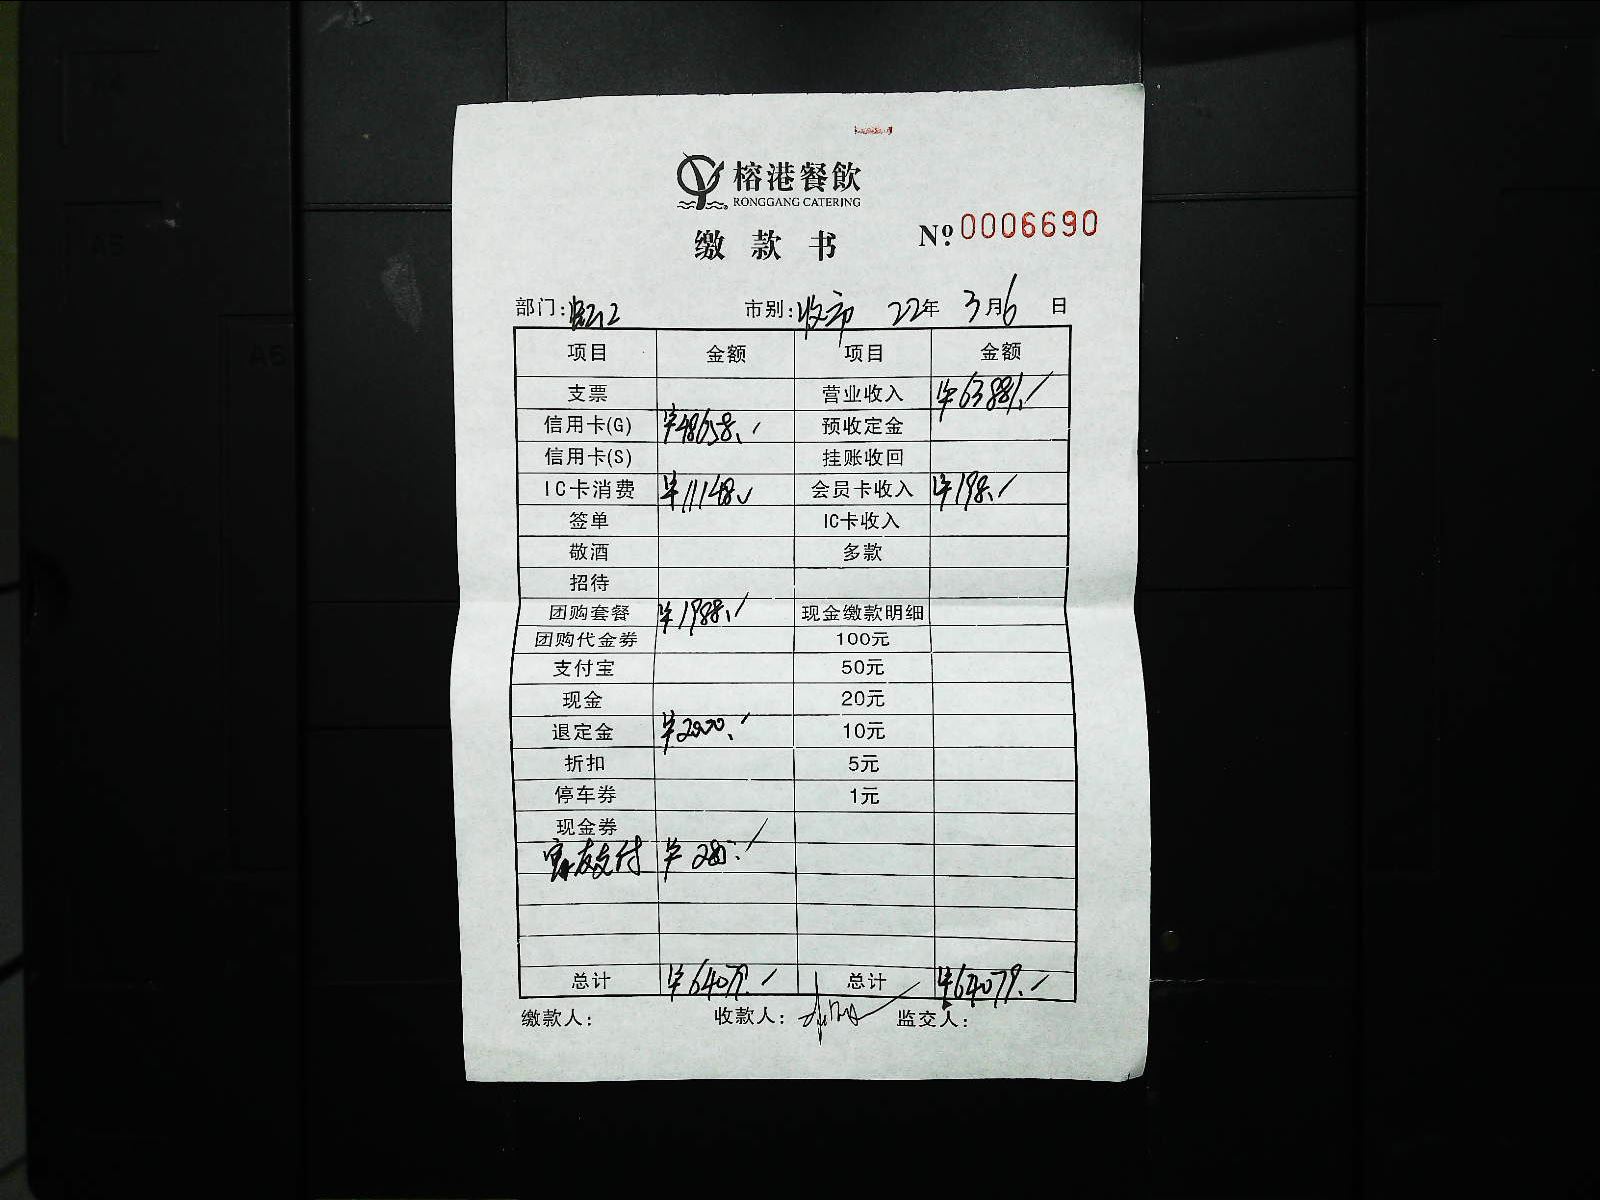 榕港餐飲
RONGGANG CATERING
缴款书
№ 0006690
部门: 市别:收市 22年 3月6日
项目 金额 项目 金额
支票 营业收入 ¥63881.
信用卡(G) ¥48658. 预收定金
信用卡(S) 挂账收回
IC卡消费 ¥11148. 会员卡收入 ¥198.
签单 IC卡收入
敬酒 多款
招待
团购套餐 ¥1988. 现金缴款明细
团购代金券 100元
支付宝 50元
现金 20元
退定金 ¥2000. 10元
折扣 5元
停车券 1元
现金券
友支付 ¥285.
总计 ¥64079. 总计 ¥64079.
缴款人: 收款人: 监交人: